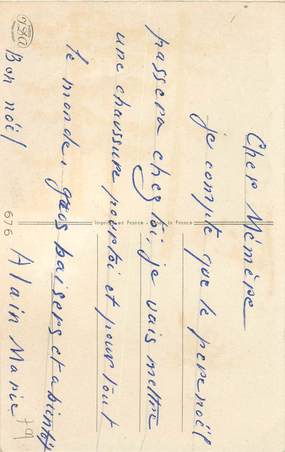 Cher Mémère
je compte que le pere noël
passera chez toi, je vais mettre
une chaussure pour toi et pour tout
le monde. gros baisers et a bientôt
Bon noël Alain Marie
Imprimé en France
676
79